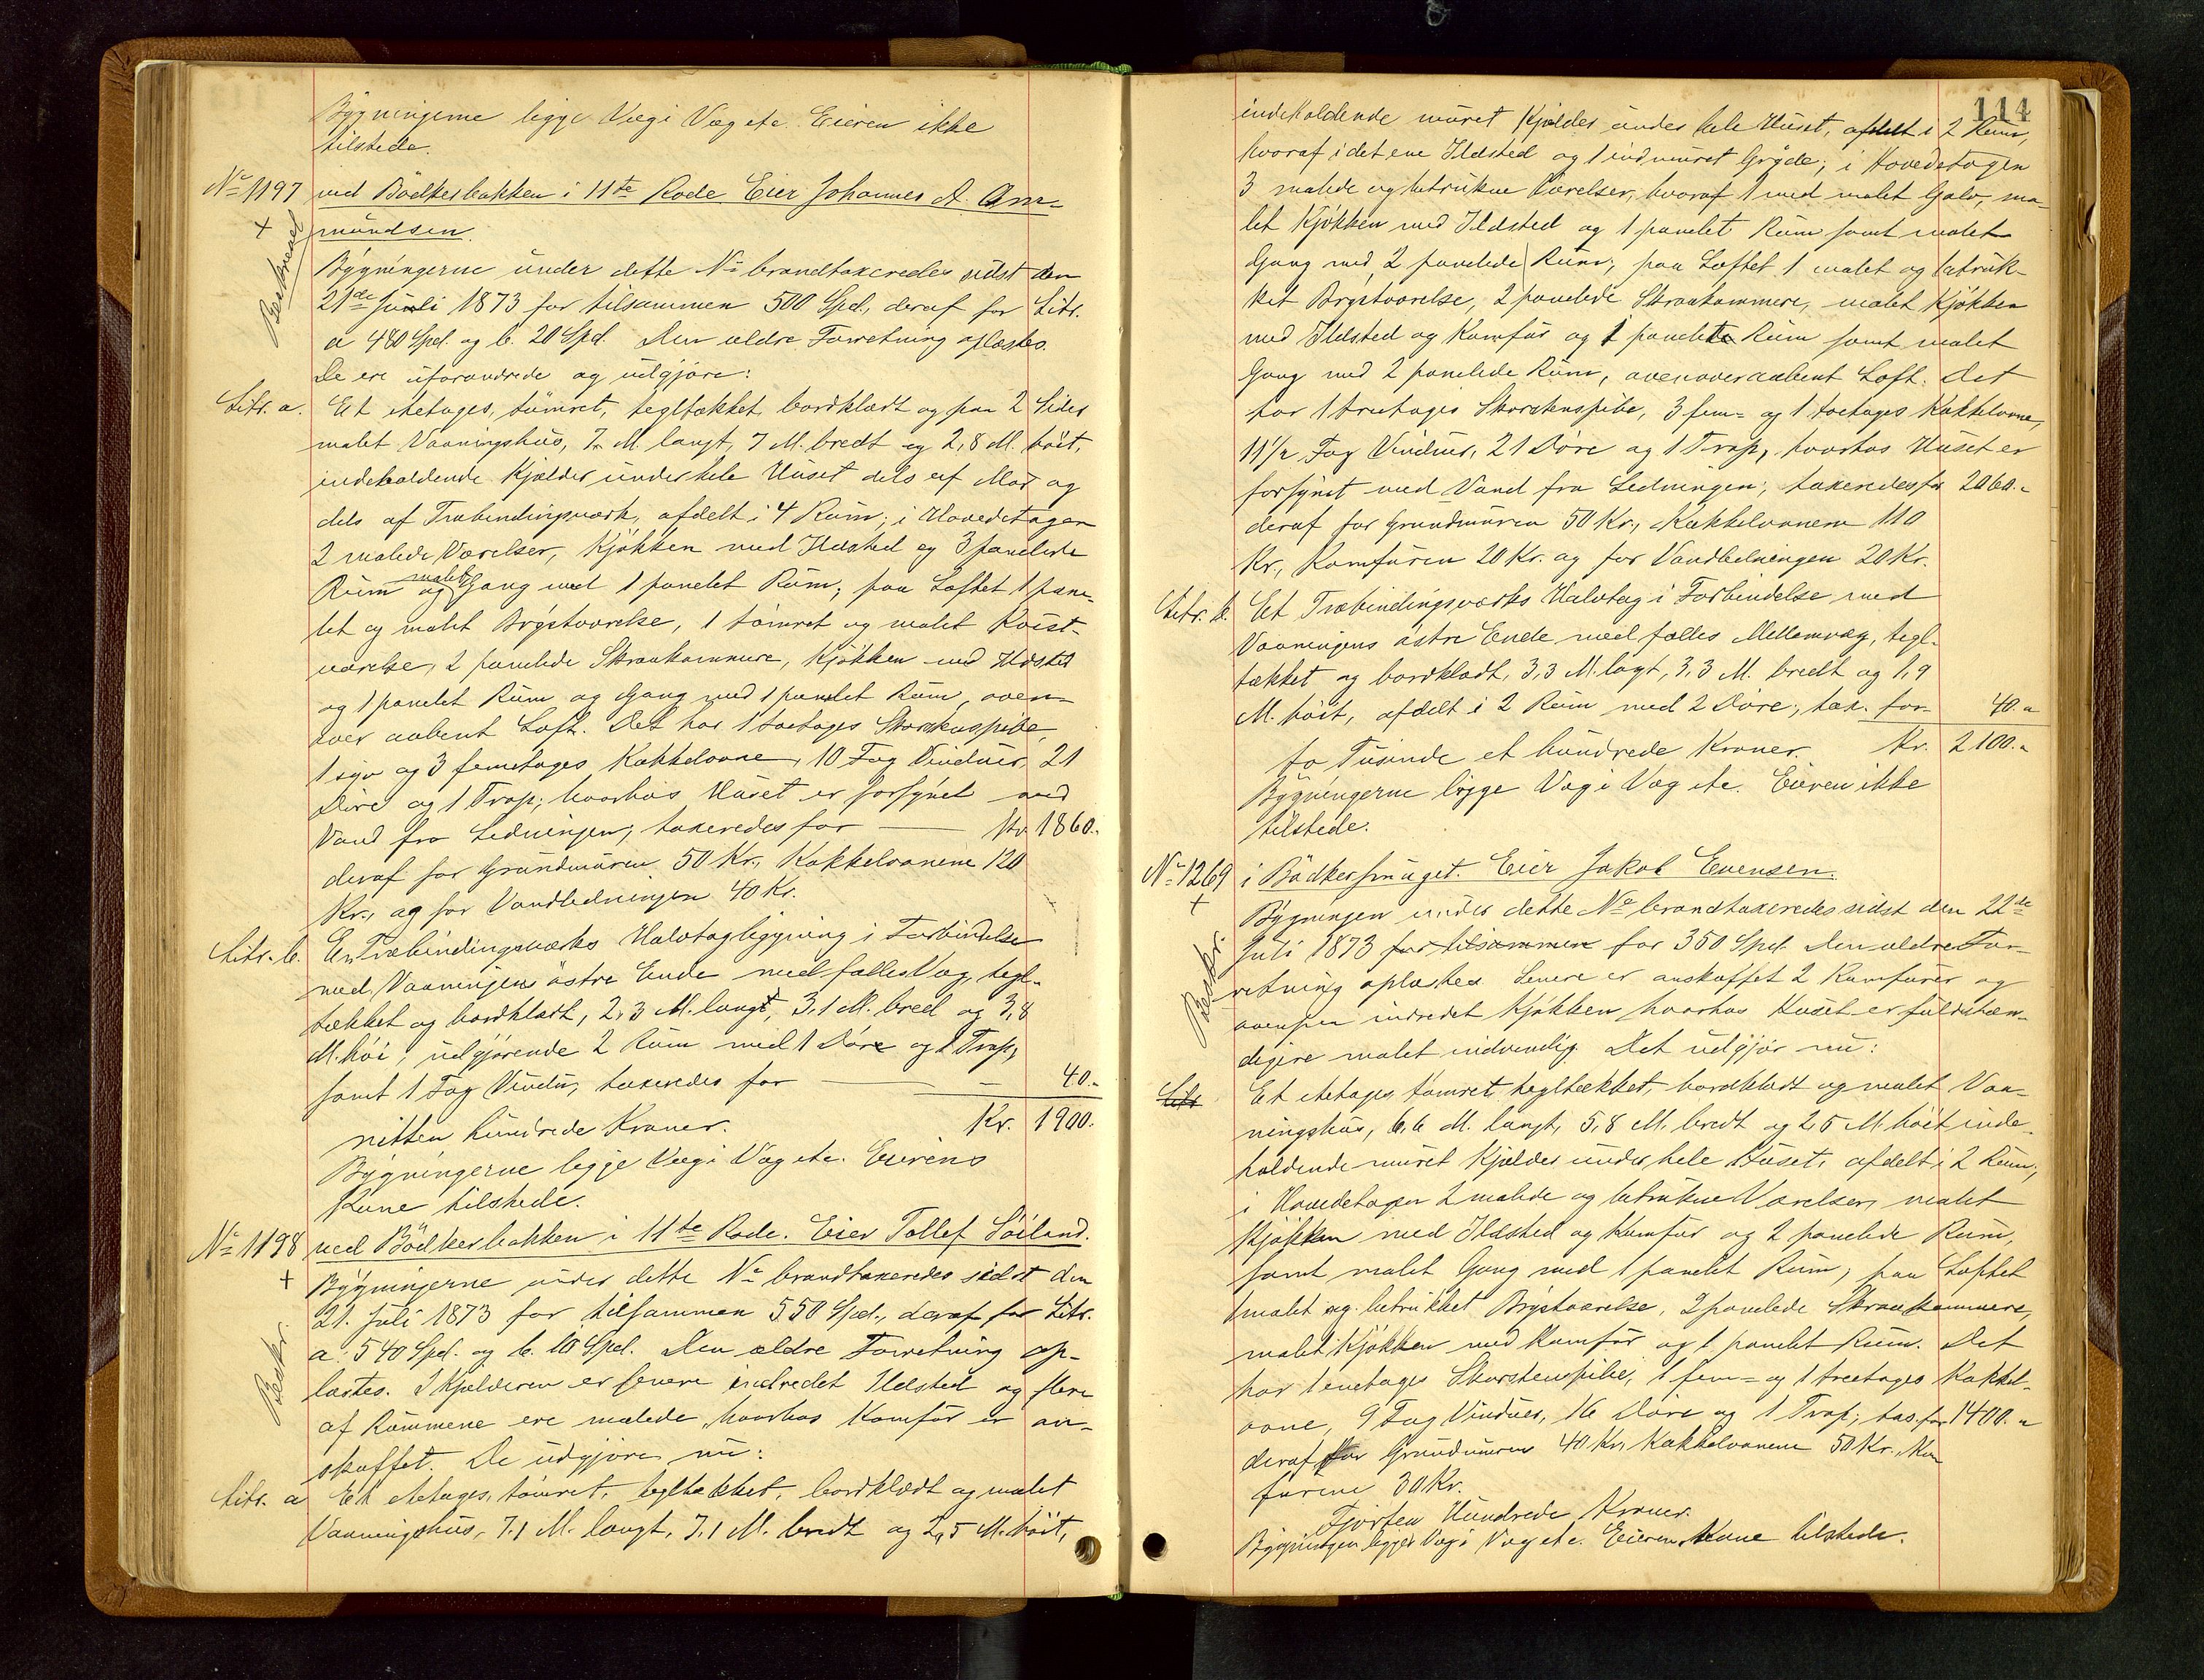 Bygningerne ligge Væg i Væg etc. Eieren ikke
tilstede.
No 1197 ved Bödkerbakken i 11te Rode. Eier Johannes A. Am-
+ mundsen.
Beskrevet
Bygningerne under dette No brandtaxeredes sidst den
21de Juli 1873 for tilsammen 500 Spd., deraf for Litr.
a 480 Spd. og b. 20 Spd. Den ældre Forretning oplæstes.
De ere uforandrede og udgjøre:
Litr. a. Et etetages, tömret, tegltækket, bordklædt og paa 2 Sider
malet Vaaningshus, 7 M. langt, 7 M. bredt og 2,8 M. höit,
indeholdende Kjælder under hele Huset dels af Mur og
dels af Træbindingsværk, afdelt i 4 Rum; i Hovedetagen
2 malede Værelser, Kjökken med Ildsted og 3 panelede
Rum og malet Gang med 1 panelet Rum; paa Loftet 1 pane-
let og malet Brystværelse, 1 tömret og malet Kvist-
værelse, 2 panelede Skraakammere, Kjökken med Ildsted
og 1 panelet Rum og Gang med 1 panelet Rum, oven-
over aabent Loft. Det har 1 toetages Skorstenspibe,
1 syv og 3 femetages Kakkelovne, 10 Fag Vinduer, 21
Döre og 1 Trap; hvorhos Huset er forsynet med
Vand fra Ledningen; taxeredes for — Kr. 1860.-
deraf for Grundmuren 50 Kr., Kakkelovnene 120
Kr., og for Vandledningen 40 Kr.
Litr. b. En Træbindingsværks Halvtagbygning i Forbindelse
med Vaaningens östre Ende med fælles Væg, tegl-
tækket og bordklædt, 2,3 M. langt, 3,1 M. bred og 3,8
M. höi, udgjörende 2 Rum med 1 Döre og 1 Trap,
samt 1 Fag Vindu, taxeredes for — 40.-
nitten hundrede Kroner. Kr. 1900.-
Bygningerne ligge Væg i Væg etc. Eierens
Kone tilstede.
No 1198 ved Bödkerbakken i 11te Rode. Eier Tollef Söiland.
+ Bygningerne under dette No brandtaxeredes sidst den
21. Juli 1873 for tilsammen 550 Spd., deraf for Litr.
Beskr.
a. 540 Spd. og b. 10 Spd. Den ældre Forretning op-
læstes. I Kjælderen er senere indredet Ildsted og flere
af Rummene ere malede, hvorhos Komfur er an-
skaffet. De udgjøre nu:
Litr. a Et etetages, tömret, tegltækket, bordklædt og malet
Vaaningshus, 7,1 M. langt, 7,1 M. bredt og 2,5 M. höit,
114
indeholdende muret Kjælder under hele Huset, afdelt i 2 Rum,
hvoraf i det ene Ildsted og 1 indmuret Gryde; i Hovedetagen
3 malede og betrukne Værelser, hvoraf 1 med malet Gulv, ma-
let Kjökken med Ildsted og 1 panelet Rum samt malet
Gang med 2 panelede Rum; paa Loftet 1 malet og betruk-
ket Brystværelse, 2 panelede Skraakammere, malet Kjökken
med Ildsted og Komfur og 1 panelet Rum samt malet
Gang med 2 panelede Rum, ovenover aabent Loft. Det
har 1 treetages Skorstenspibe, 3 fem- og 1 toetages Kakkelovne,
11 1/2 Fag Vinduer, 21 Döre og 1 Trap, hvorhos Huset er
forsynet med Vand fra Ledningen; taxeredes for 2060.-
deraf for Grundmuren 50 Kr., Kakkelovnene 110
Kr., Komfuren 20 Kr. og for Vandledningen 20 Kr.
Litr. b. Et Træbindingsværks Halvtag i Forbindelse med
Vaaningens östre Ende med fælles Mellemvæg, tegl-
tækket og bordklædt, 3,3 M. lagt, 3,3 M. bredt og 1,9
M. höit, afdelt i 2 Rum med 2 Döre; tax. for 40.-
to Tusinde et hundrede Kroner. Kr. 2100.-
Bygningerne ligge Væg i Væg etc. Eieren ikke
tilstede.
No 1269 i Bödkersmuget. Eier Jakob Evensen.
+ Bygningen under dette No brandtaxeredes sidst den 22de
Beskr.
Juli 1873 for tilsammen for 350 Spd. Den ældre For-
retning oplæstes. Senere er anskaffet 2 Komfurer og
ovenpaa indredet Kjökken hvorhos Huset er fuldstæn-
digere malet indvendig. Det udgjör nu:
Litr Et etetages tömret, tegltækket, bordklædt og malet Vaa-
ningshus, 6,6 M. langt, 5,8 M. bredt og 2,5 M. höit inde-
holdende muret Kjælder under hele Huset, afdelt i 2 Rum,
i Hovedetagen 2 malede og betrukne Værelser, malet
Kjökken med Ildsted og Komfur og 2 panelede Rum,
samt malet Gang med 1 panelet Rum; paa Loftet
1 malet og betrukket Brystværelse, 2 panelede Skraakammere,
malet Kjökken med Komfur og 1 panelet Rum. Det
har 1 enetages Skorstenspibe, 1 fem- og 1 treetages Kakkel-
ovne, 9 Fag Vinduer, 16 Döre og 1 Trap; tax. for 1400.-
deraf for Grundmuren 40 Kr., Kakkelovnene 50 Kr., Kom
furene 30 Kr.
Fjorten Hundrede Kroner.
Bygningen ligger Væg i Væg etc. Eierens Kone tilstede.